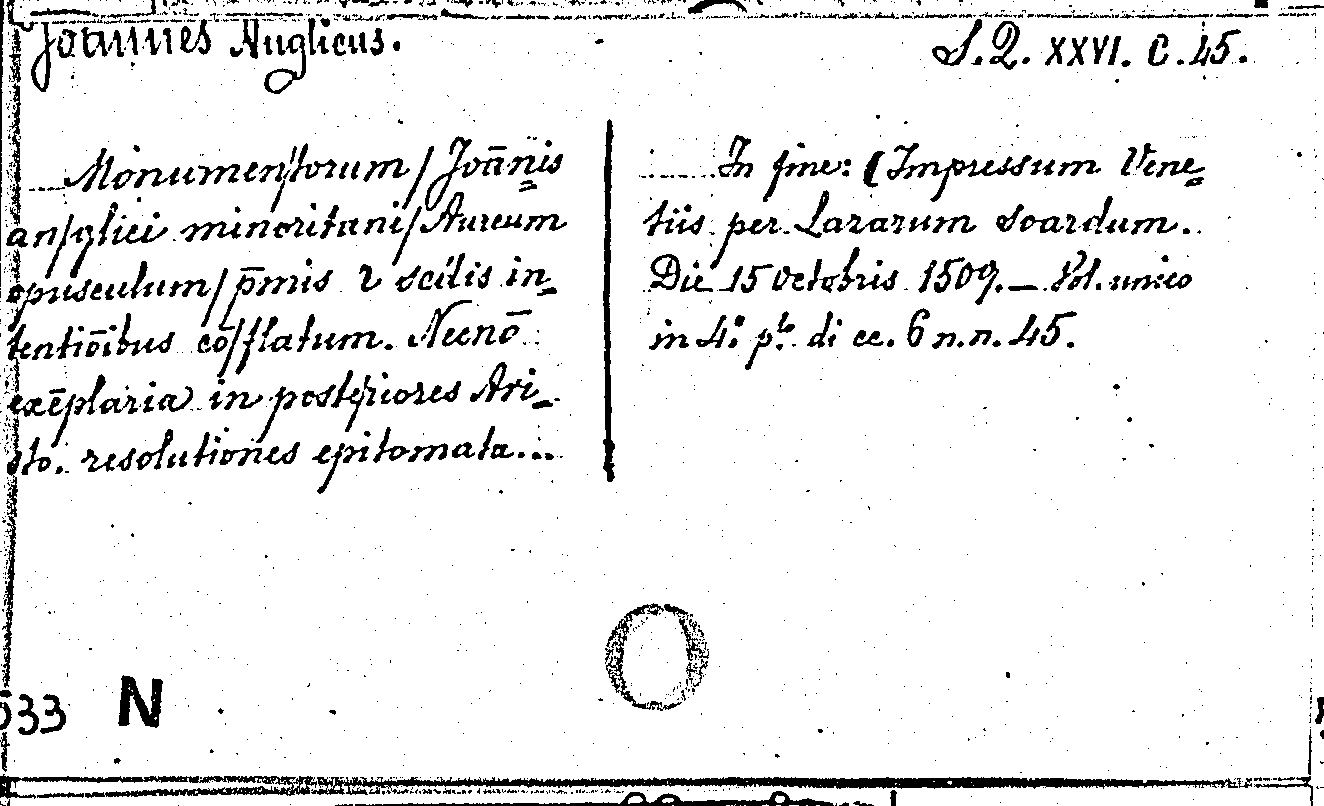 Joannes Anglicus.
S.Q. XXVI. C. 45.
Monumentorum / Joānis
an/glici minoritani / Aureum
opusculum / p̄mis ꝛ scd̄is in-
tentiōibus cō/flatum. Necnō
exēplaria in poste/riores Ari-
sto. resolutiones epitomata...
In fine: (Impressum Vene-
tiis per Lazarum Soardum.
Die 15 Octobris 1509. — Vol. unico
in 4.° p.lo di cc. 6 n.n. 45.
533 N